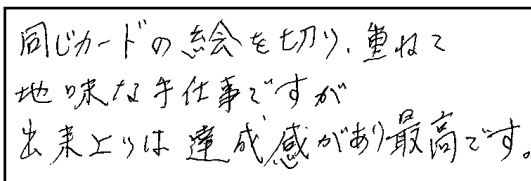 同じカードの絵を切り、重ねて
地味な手仕事ですが
出来上りは達成感があり最高です。